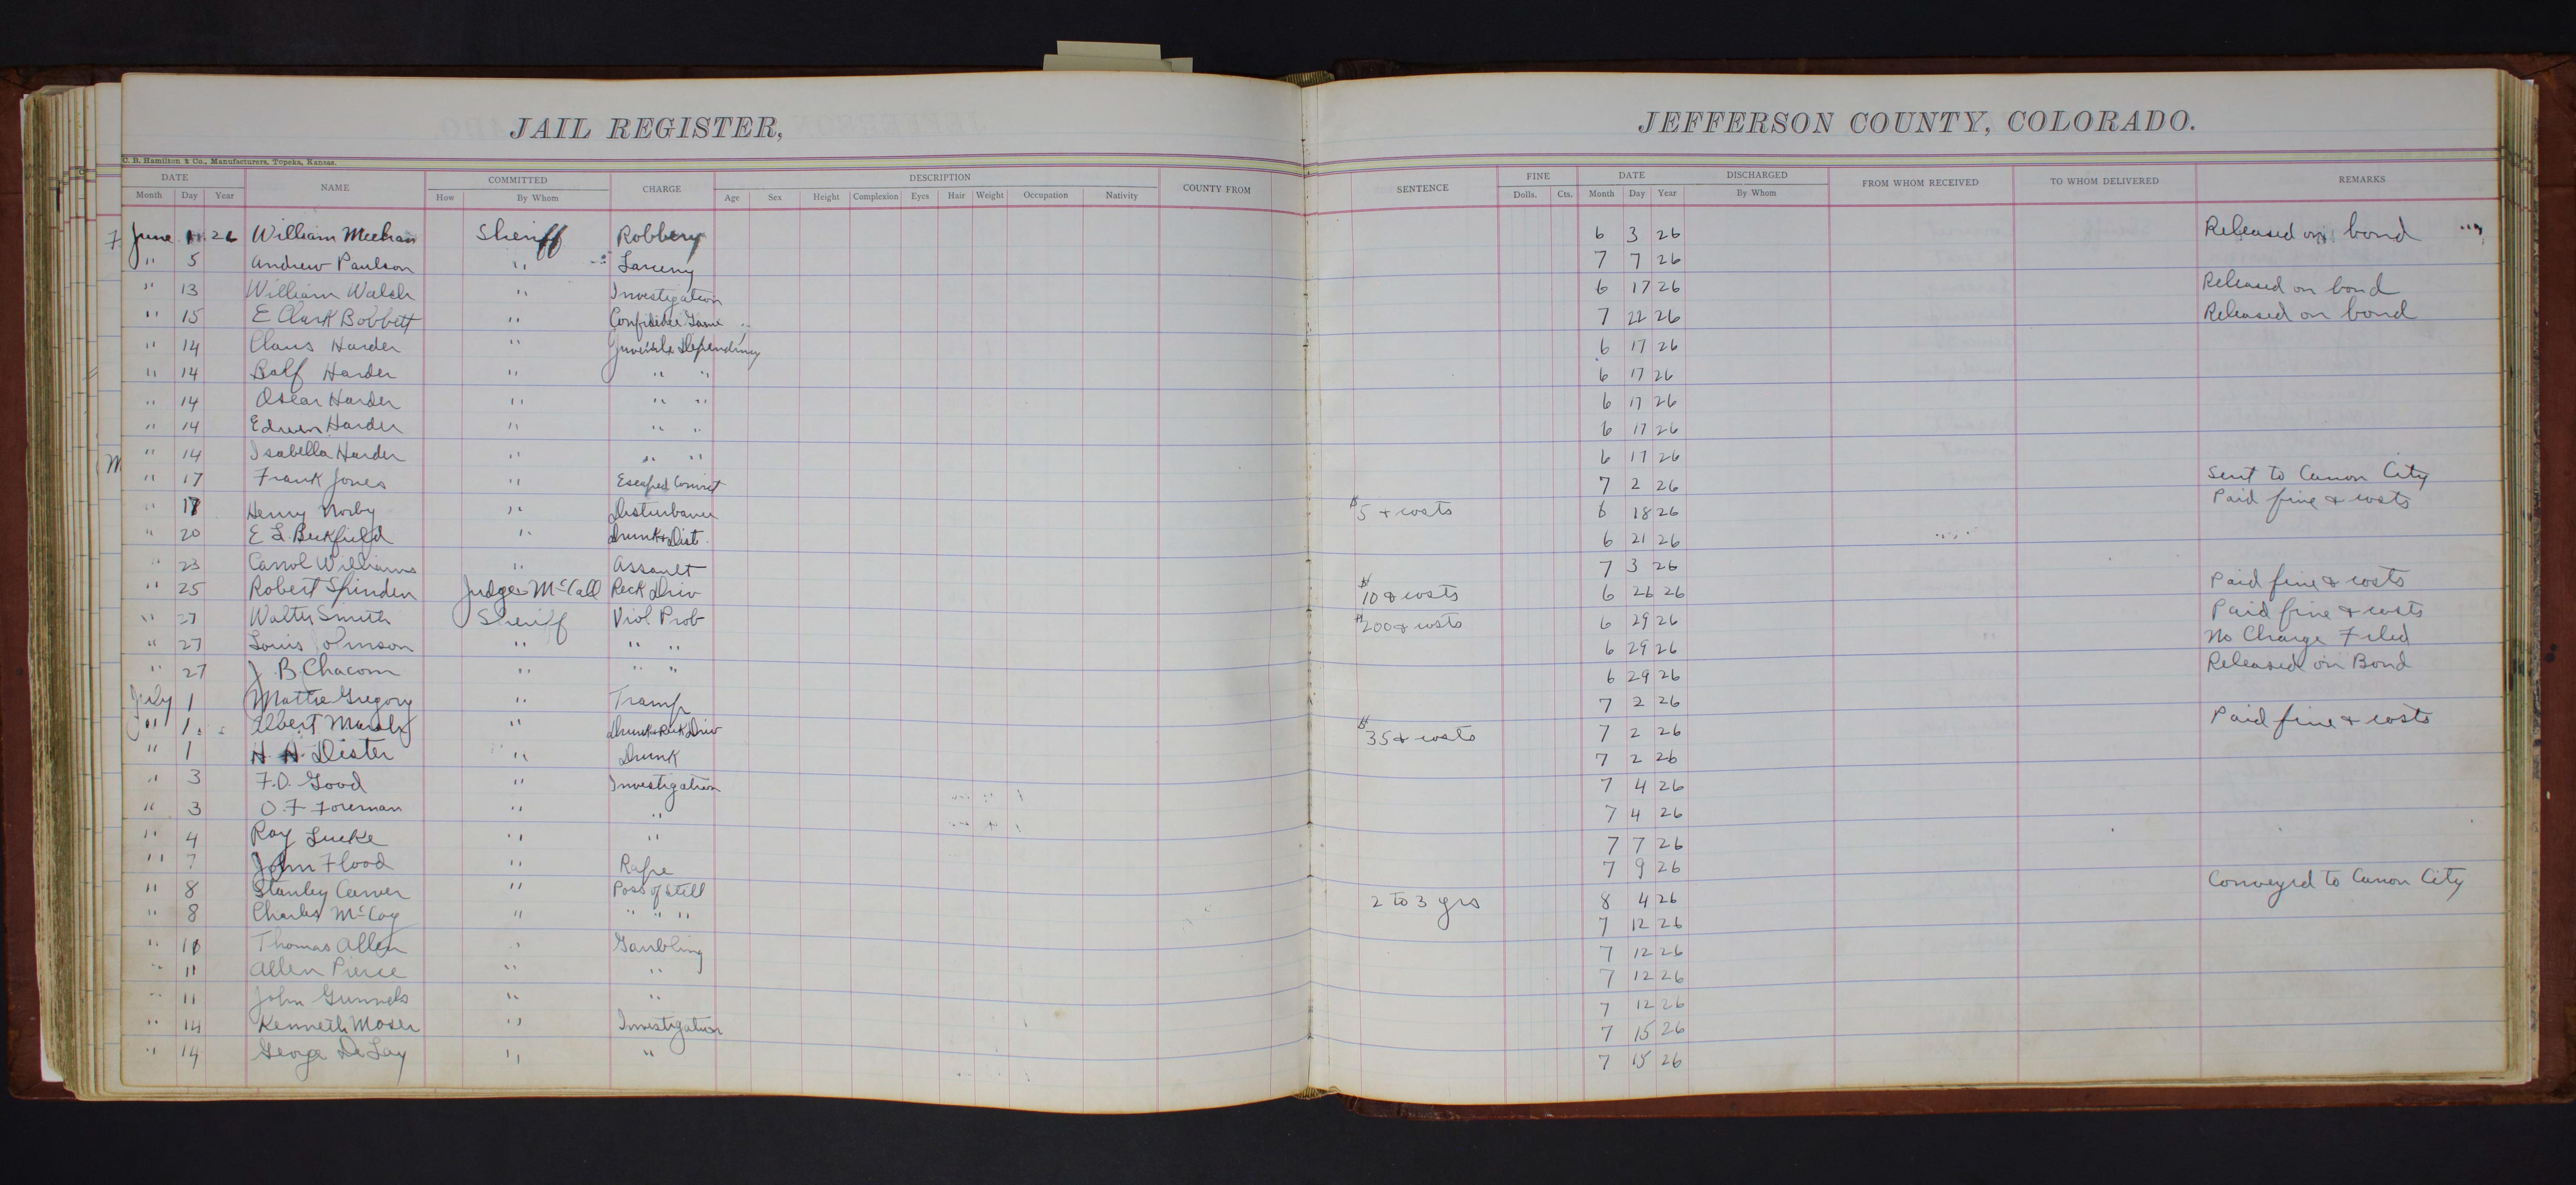 JAIL REGISTER, JEFFERSON COUNTY, COLORADO.
C. B. Hamilton & Co., Manufacturers, Topeka, Kansas.
DATE NAME COMMITTED CHARGE DESCRIPTION COUNTY FROM SENTENCE FINE DATE DISCHARGED FROM WHOM RECEIVED TO WHOM DELIVERED REMARKS
Month Day Year How By Whom Age Sex Height Complexion Eyes Hair Weight Occupation Nativity Dolls. Cts. Month Day Year By Whom
June 26 William Meehan Sheriff Robbery 6 3 26 Released on bond
" 5 Andrew Paulson " Larceny 7 7 26
" 13 William Walsh " Investigation 6 17 26 Released on bond
" 15 E Clark Bobbett " Confidence Game 7 22 26 Released on bond
" 14 Claus Harder " Juvenile Dependincy 6 17 26
" 14 Ralf Harder " " " 6 17 26
" 14 Oscar Harder " " " 6 17 26
" 14 Edwin Harder " " " 6 17 26
" 14 Isabella Harder " " " 6 17 26
" 17 Frank Jones " Escaped Convict 7 2 26 Sent to Canon City
" 17 Henry Norby " Disturbance $5 & costs 6 18 26 Paid fine & costs
" 20 E L Buckfield " Drunk & Dist. 6 21 26
" 23 Carrol Williams " Assault 7 3 26
" 25 Robert Spinden Judge McCall Reck Driv $10 & costs 6 26 26 Paid fine & costs
" 27 Walter Smith Sheriff Viol Prob $200 & costs 6 29 26 Paid fine & costs
" 27 Louis Johnson " " " 6 29 26 No Charge Filed
" 27 J. B Chacom " " " 6 29 26 Released on Bond
July 1 Mattie Gregory " Tramp 7 2 26
" 1 Elbert Marsh " Drunk & Reck Driv $35 & costs 7 2 26 Paid fine & costs
" 1 H. H. Dister " Drunk 7 2 26
" 3 F.D. Good " Investigation 7 4 26
" 3 O. F. Foreman " " 7 4 26
" 4 Ray Lucke " " 7 7 26
" 7 John Flood " Rape 7 9 26
" 8 Stanley Carver " Poss of Still 2 to 3 yrs 8 4 26 Conveyed to Canon City
" 8 Charles McCoy " " " " 7 12 26
" 10 Thomas Allen " Gambling 7 12 26
" 11 Allen Pierce " " 7 12 26
" 11 John Gunnels " " 7 12 26
" 14 Kenneth Moser " Investigation 7 15 26
" 14 George DeLay " " 7 15 26